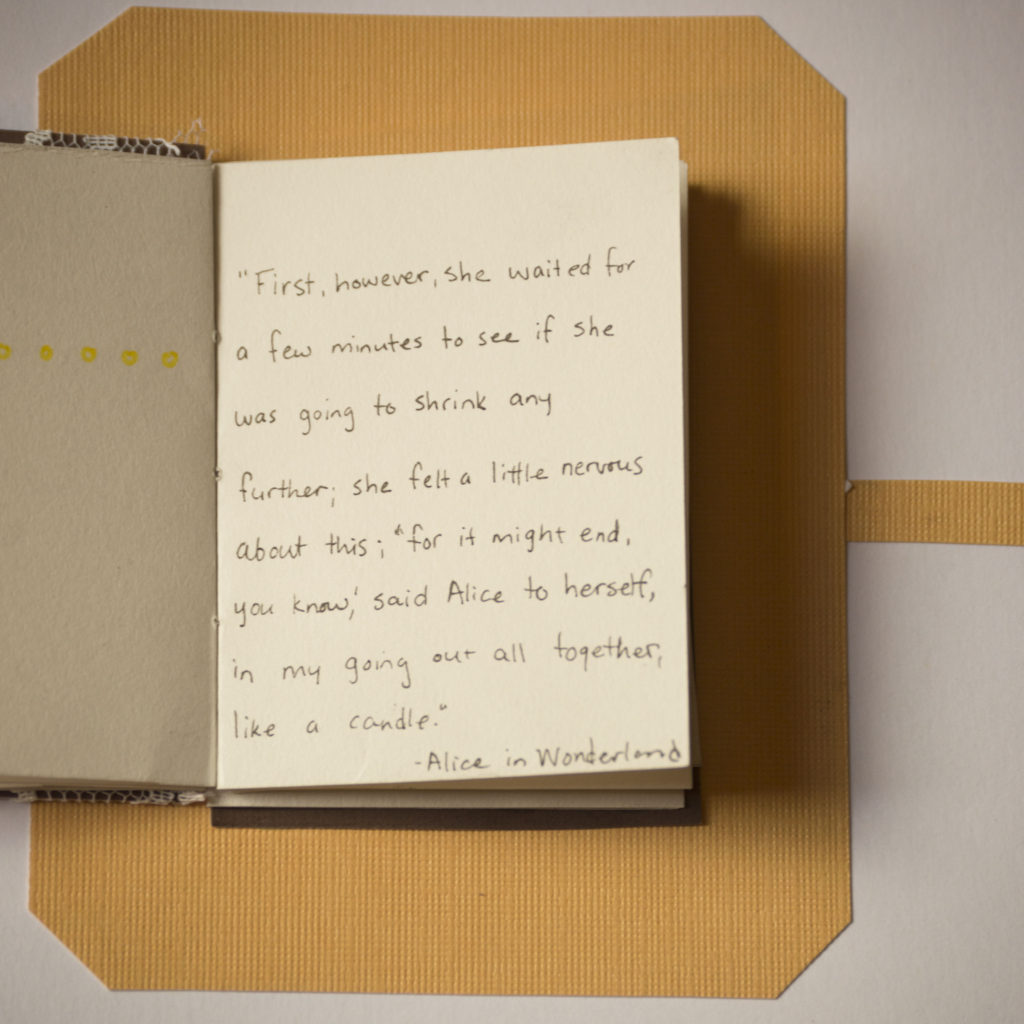 "First, however, she waited for
a few minutes to see if she
was going to shrink any
further; she felt a little nervous
about this; "for it might end,
you know,' said Alice to herself,
in my going out all together,
like a candle."
-Alice in Wonderland